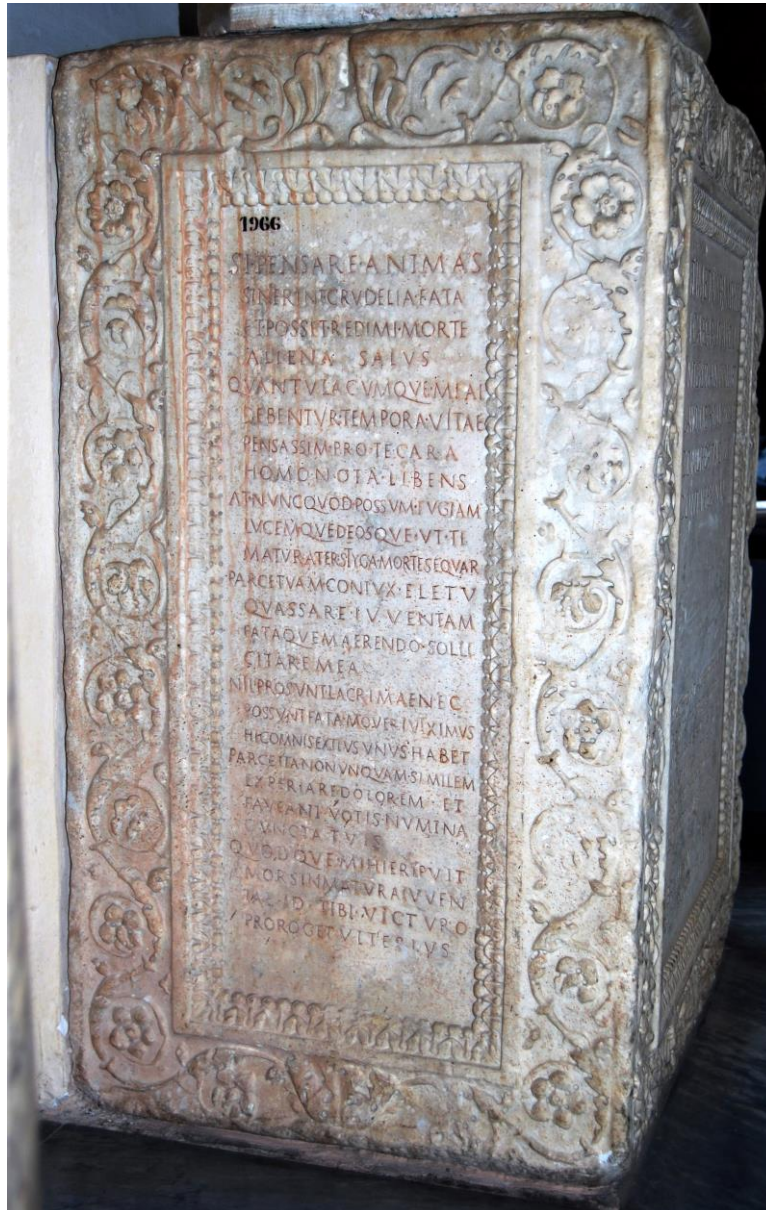 1966
SI·PENSARE·ANIMAS
SINERENT·CRVDELIA·FATA
ET·POSSET·REDIMI·MORTE
ALIENA SALVS
QVANTVLACVMQVE·MEAE
DEBENTVR·TEMPORA·VITAE
PENSASSIM·PRO·TE·CARA
HOMONOEA·LIBENS
AT·NVNC·QVOD·POSSVM·FVGIAM
LVCEMQVE·DEOSQVE·VT·TE
MATVRA·PER·STYGA·MORTE·SEQVAR
PARCE·TVAM·CONIVX·FLETV
QVASSARE·IVVENTAM
FATAQVE·MAERENDO·SOLLI
CITARE·MEA
NIL·PROSVNT·LACRIMAE·NEC
POSSVNT·FATA·MOVERI·VIXIMVS
HIC·OMNIS·EXITVS·VNVS·HABET
PARCE·ITA·NON·VNQVAM·SIMILEM
EXPERIARE·DOLOREM· ET
FAVEANT·VOTIS·NVMINA
CVNCTA·TVIS
QVODQVE·MIHI·ERIPVIT
MORS·INMATVRA·IVVEN
TAE·ID· TIBI·VICTVRO
PROROGET·VLTERIVS